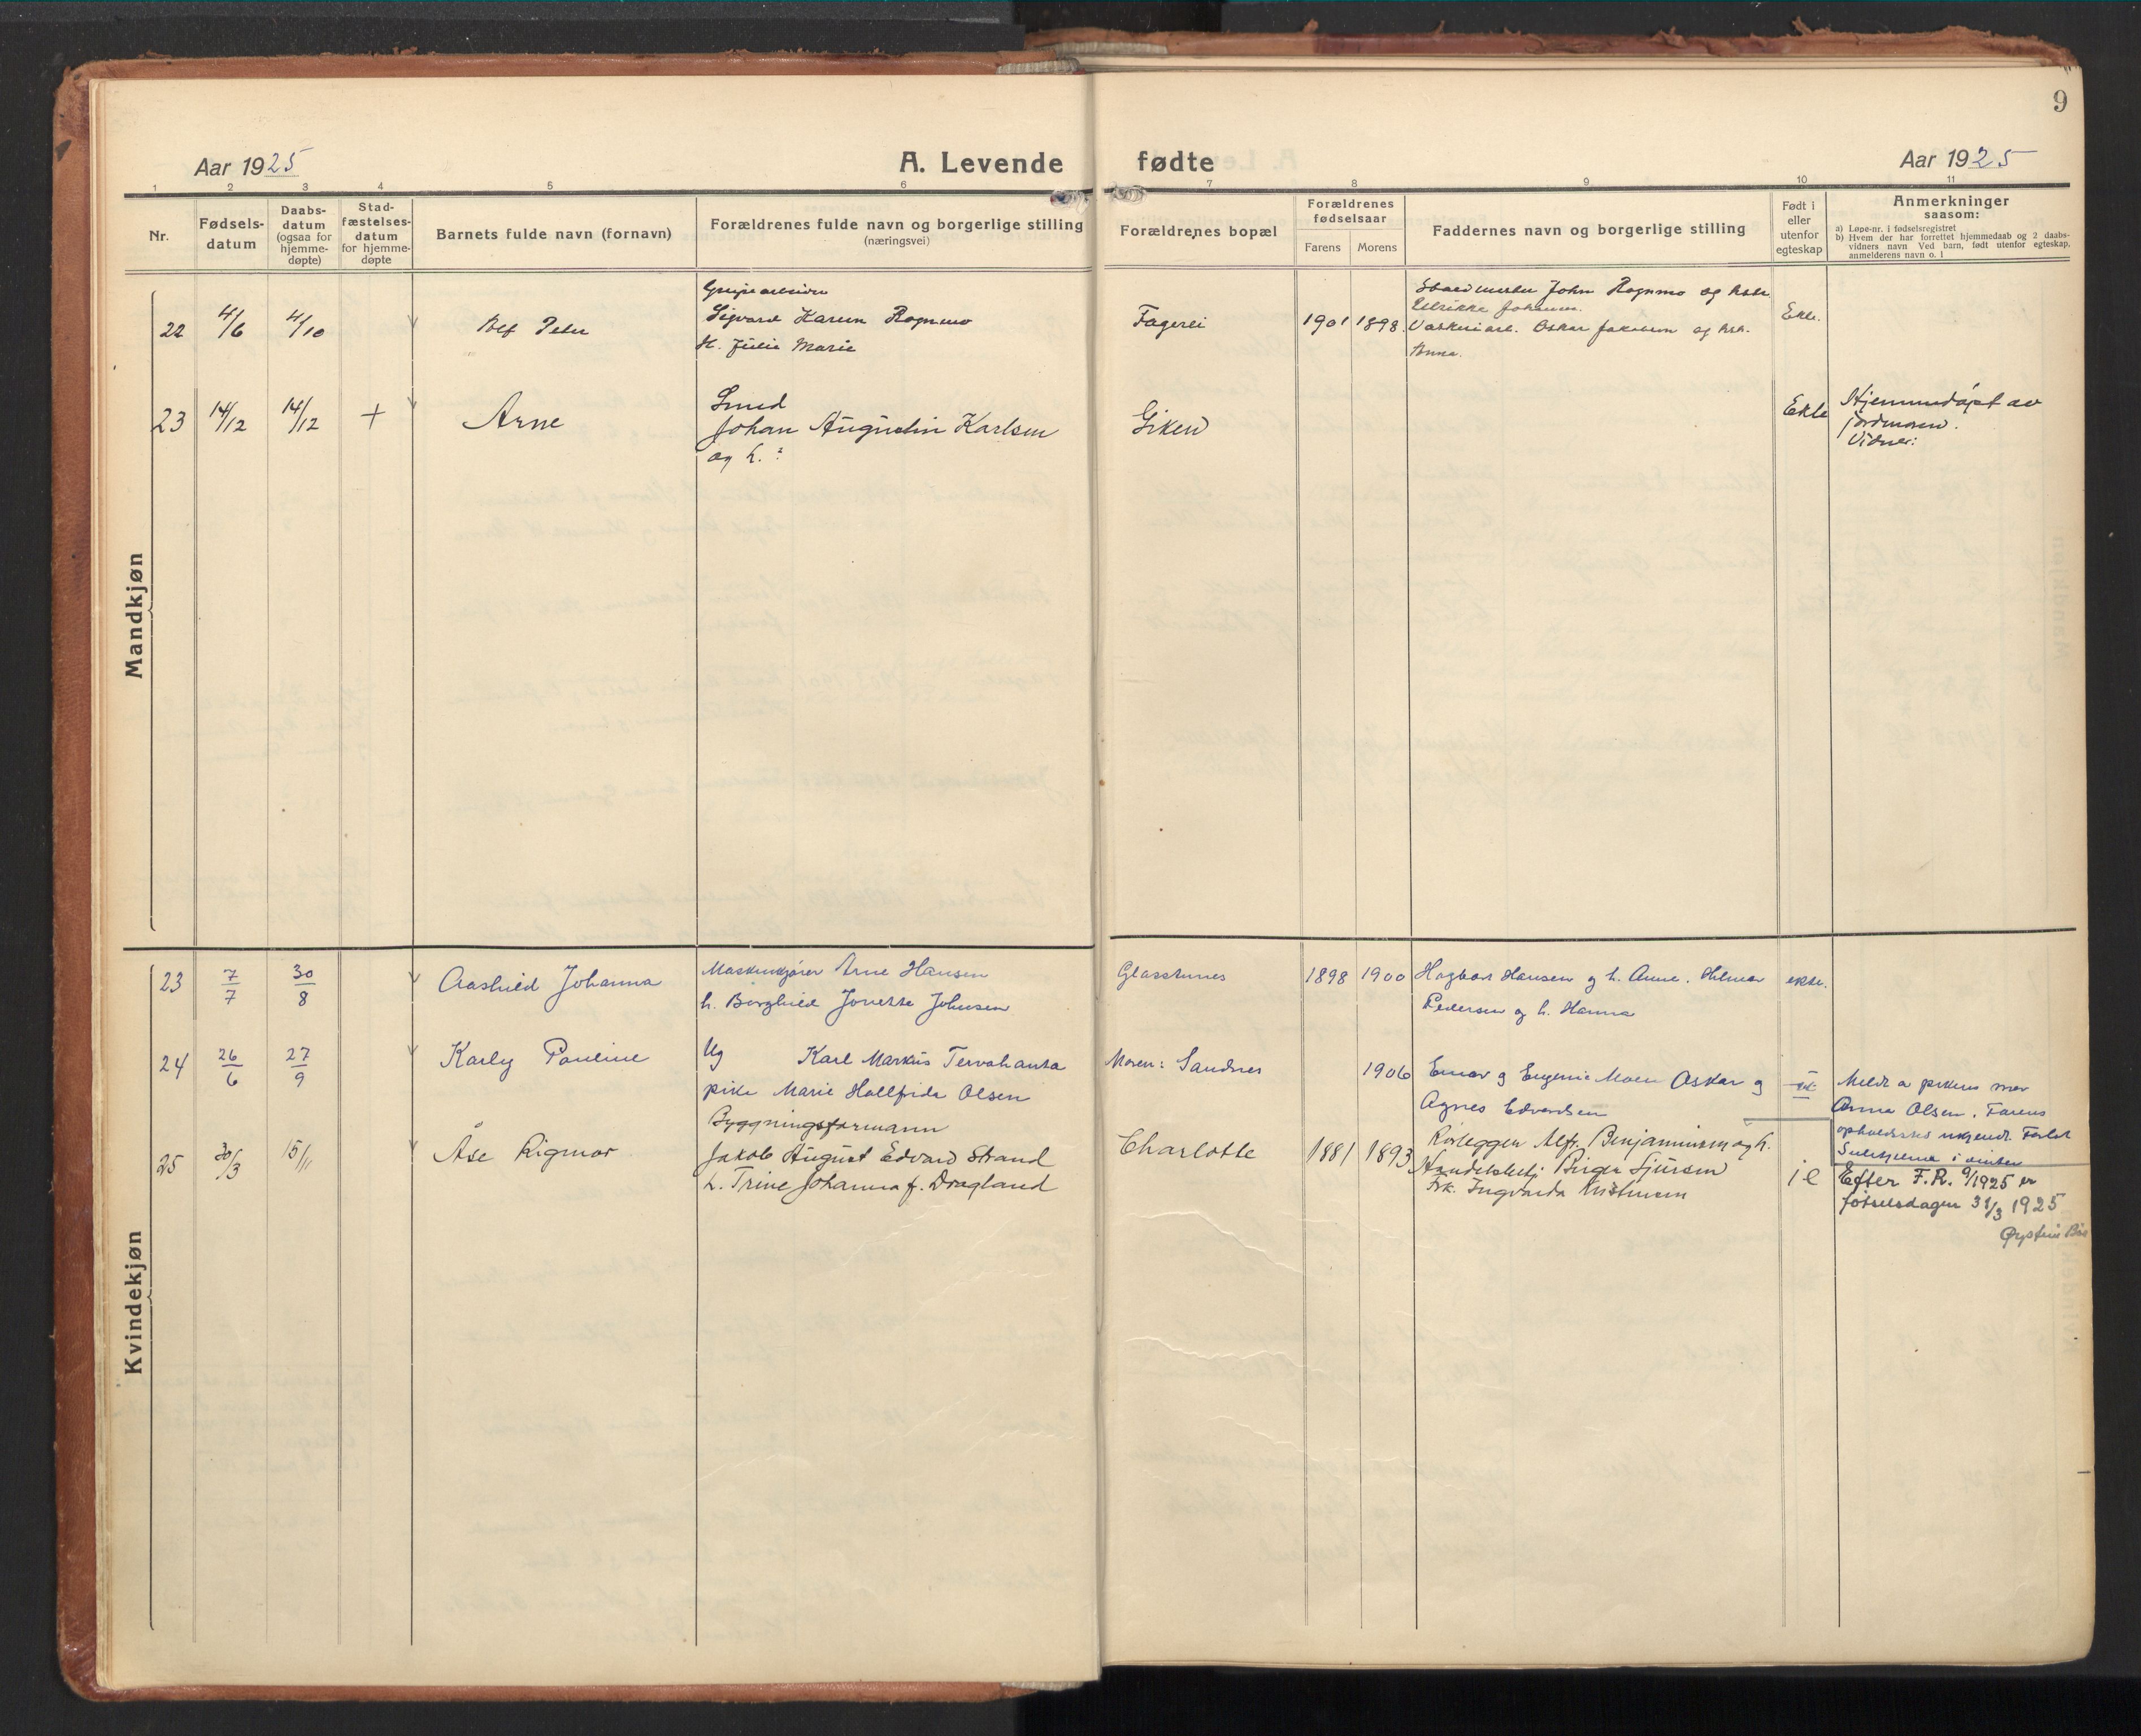 9
Aar 1925
A. Levende
fødte
Aar 1925
1 2 3 4 5 6 7 8 9 10 11
Nr.
Fødsels-
datum
Daabs-
datum
(ogsaa for
hjemme-
døpte)
Stad-
fæstelses-
datum
for hjemme-
døpte
Barnets fulde navn (fornavn)
Forældrenes fulde navn og borgerlige stilling
(næringsvei)
Forældrenes bopæl
Forældrenes
fødselsaar
Farens Morens
Faddernes navn og borgerlige stilling
Født i
eller
utenfor
egteskap
Anmerkninger
saasom:
a) Løpe-nr. i fødselsregistret
b) Hvem der har forrettet hjemmedaab og 2 daabs-
vidners navn Ved barn, født utenfor egteskap,
anmelderens navn o. l
Mandkjøn
Sigvard Rognmo
H. Julie Marie
22 4/6 4/10 Peder
Fagerli 1901 1898
John Rognmo og
Johansen.
Oskar Jakobsen og
Anna.
Ekte.
Smed
23 14/12 14/12 + Arne
Johan Augustin Karlsen
og h. ?
Giken
Ekte
Hjemmedøpt av
jordmoren.
Vidner:
Kvindekjøn
23 7/7 30/8 Aashild Johanna
Maskinkjører Arne Hansen
h. Borghild Jonette Johnsen
Glasstunes 1898 1900
Hagbart Hansen og h. Anne. Hilmar
Pedersen og h. Hanna
ekte.
24 26/6 27/9 Karly Pauline
Ug Karl Markus Tervahanta
pike Marie Hallfrida Olsen
Moren: Sandnes 1906
Einar og Eugenie Moen Oskar og
Agnes Edvardsen
Meldt a pikens mor
Anna Olsen. Farens
opholdssted ukjendt. Forlot
Sulitjelma i vinter
25 30/3 15/11 Åse Rigmor
Byggningsformann
Jakob August Edvard Strand
h. Trine Johanna f. Dragland
Charlotte 1881 1893
Rørlegger Alfr. Benjaminsen og h.
Birger Sjursen
Frk. Ingvarda Kristensen
i e
Efter F.R. 9/1925 er
fødselsdagen 31/3 1925